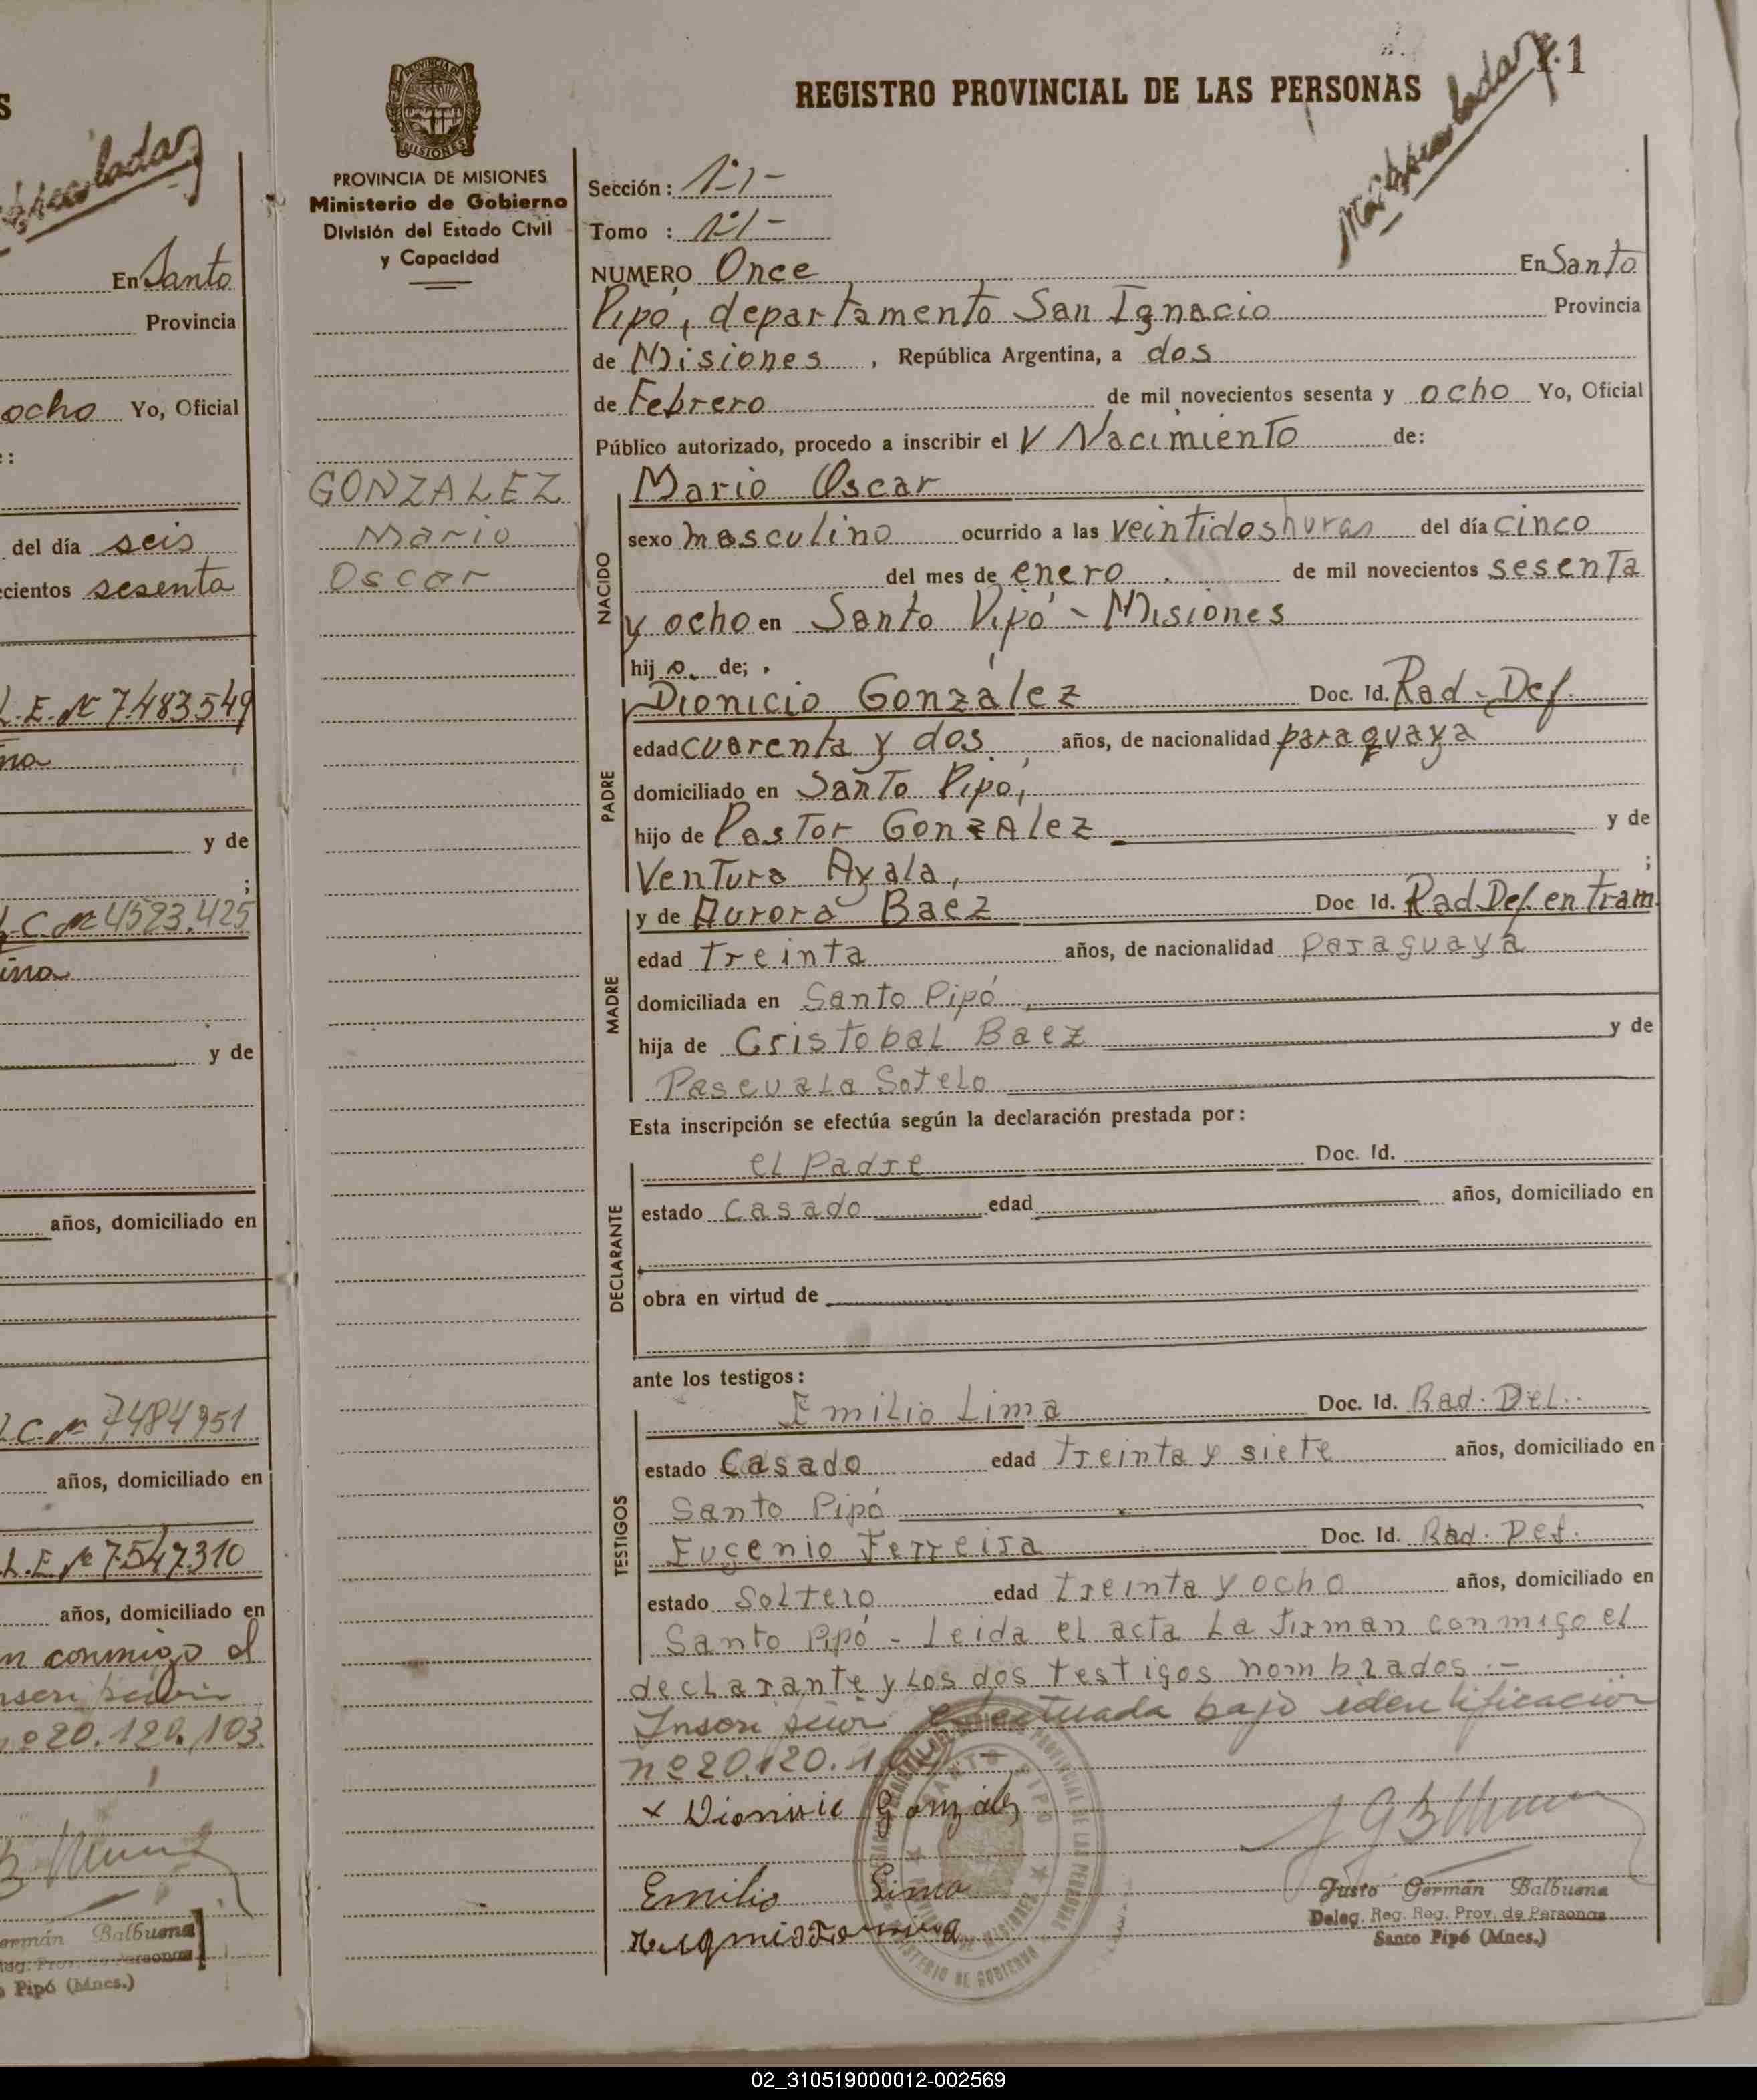 S
En Santo
Provincia
ocho Yo, Oficial
:
del día seis
ecientos sesenta
L.E. Nº 7.483.549
na
y de
;
L.C. Nº 4523.425
ina
y de
años, domiciliado en
L.C. Nº 7484951
años, domiciliado en
L.E Nº 7.547.310
años, domiciliado en
n conmigo el
nº 20.120.103
ermán Balbuena
Pipó (Mnes.)
PROVINCIA DE MISIONES
Ministerio de Gobierno
División del Estado Civil
y Capacidad
GONZALEZ
Mario
Oscar
REGISTRO PROVINCIAL DE LAS PERSONAS
1
Sección: 1º-
Tomo : 1º-
NUMERO Once En Santo
Pipó, departamento San Ignacio Provincia
de Misiones, República Argentina, a dos
de Febrero de mil novecientos sesenta y ocho Yo, Oficial
Público autorizado, procedo a inscribir el Nacimiento de:
Mario Oscar
NACIDO
sexo masculino ocurrido a las veintidos horas del día cinco
del mes de enero de mil novecientos sesenta
y ocho en Santo Pipó - Misiones
hijo de;
PADRE
Dionicio González Doc. Id. Rad. Def.
edad cuarenta y dos años, de nacionalidad paraguaya
domiciliado en Santo Pipó,
hijo de Pastor GonzAlez y de
Ventura Ayala, ;
MADRE
y de Aurora Baez Doc Id. Rad. Def. en Tram.
edad treinta años, de nacionalidad paraguaya
domiciliada en Santo Pipó,
hija de Cristobal Baez y de
Pascuala Sotelo
Esta inscripción se efectúa según la declaración prestada por:
DECLARANTE
el Padre Doc. Id.
estado Casado edad años, domiciliado en
obra en virtud de
ante los testigos:
TESTIGOS
Emilio Lima Doc. Id. Rad. Def.
estado Casado edad treinta y siete años, domiciliado en
Santo Pipó
Eugenio Ferreira Doc. Id. Rad. Def.
estado Soltero edad treinta y ocho años, domiciliado en
Santo Pipó - Leida el acta la firman conmigo el
declarante y los dos testigos nombrados.-
Inscripción efectuada bajo identificación
nº 20.120.1
x Dionicio González
Emilio Lima
Justo Germán Balbuena
Deleg. Reg. Reg. Prov. de Personas
Santo Pipó (Mnes.)
02_310519000012-002569